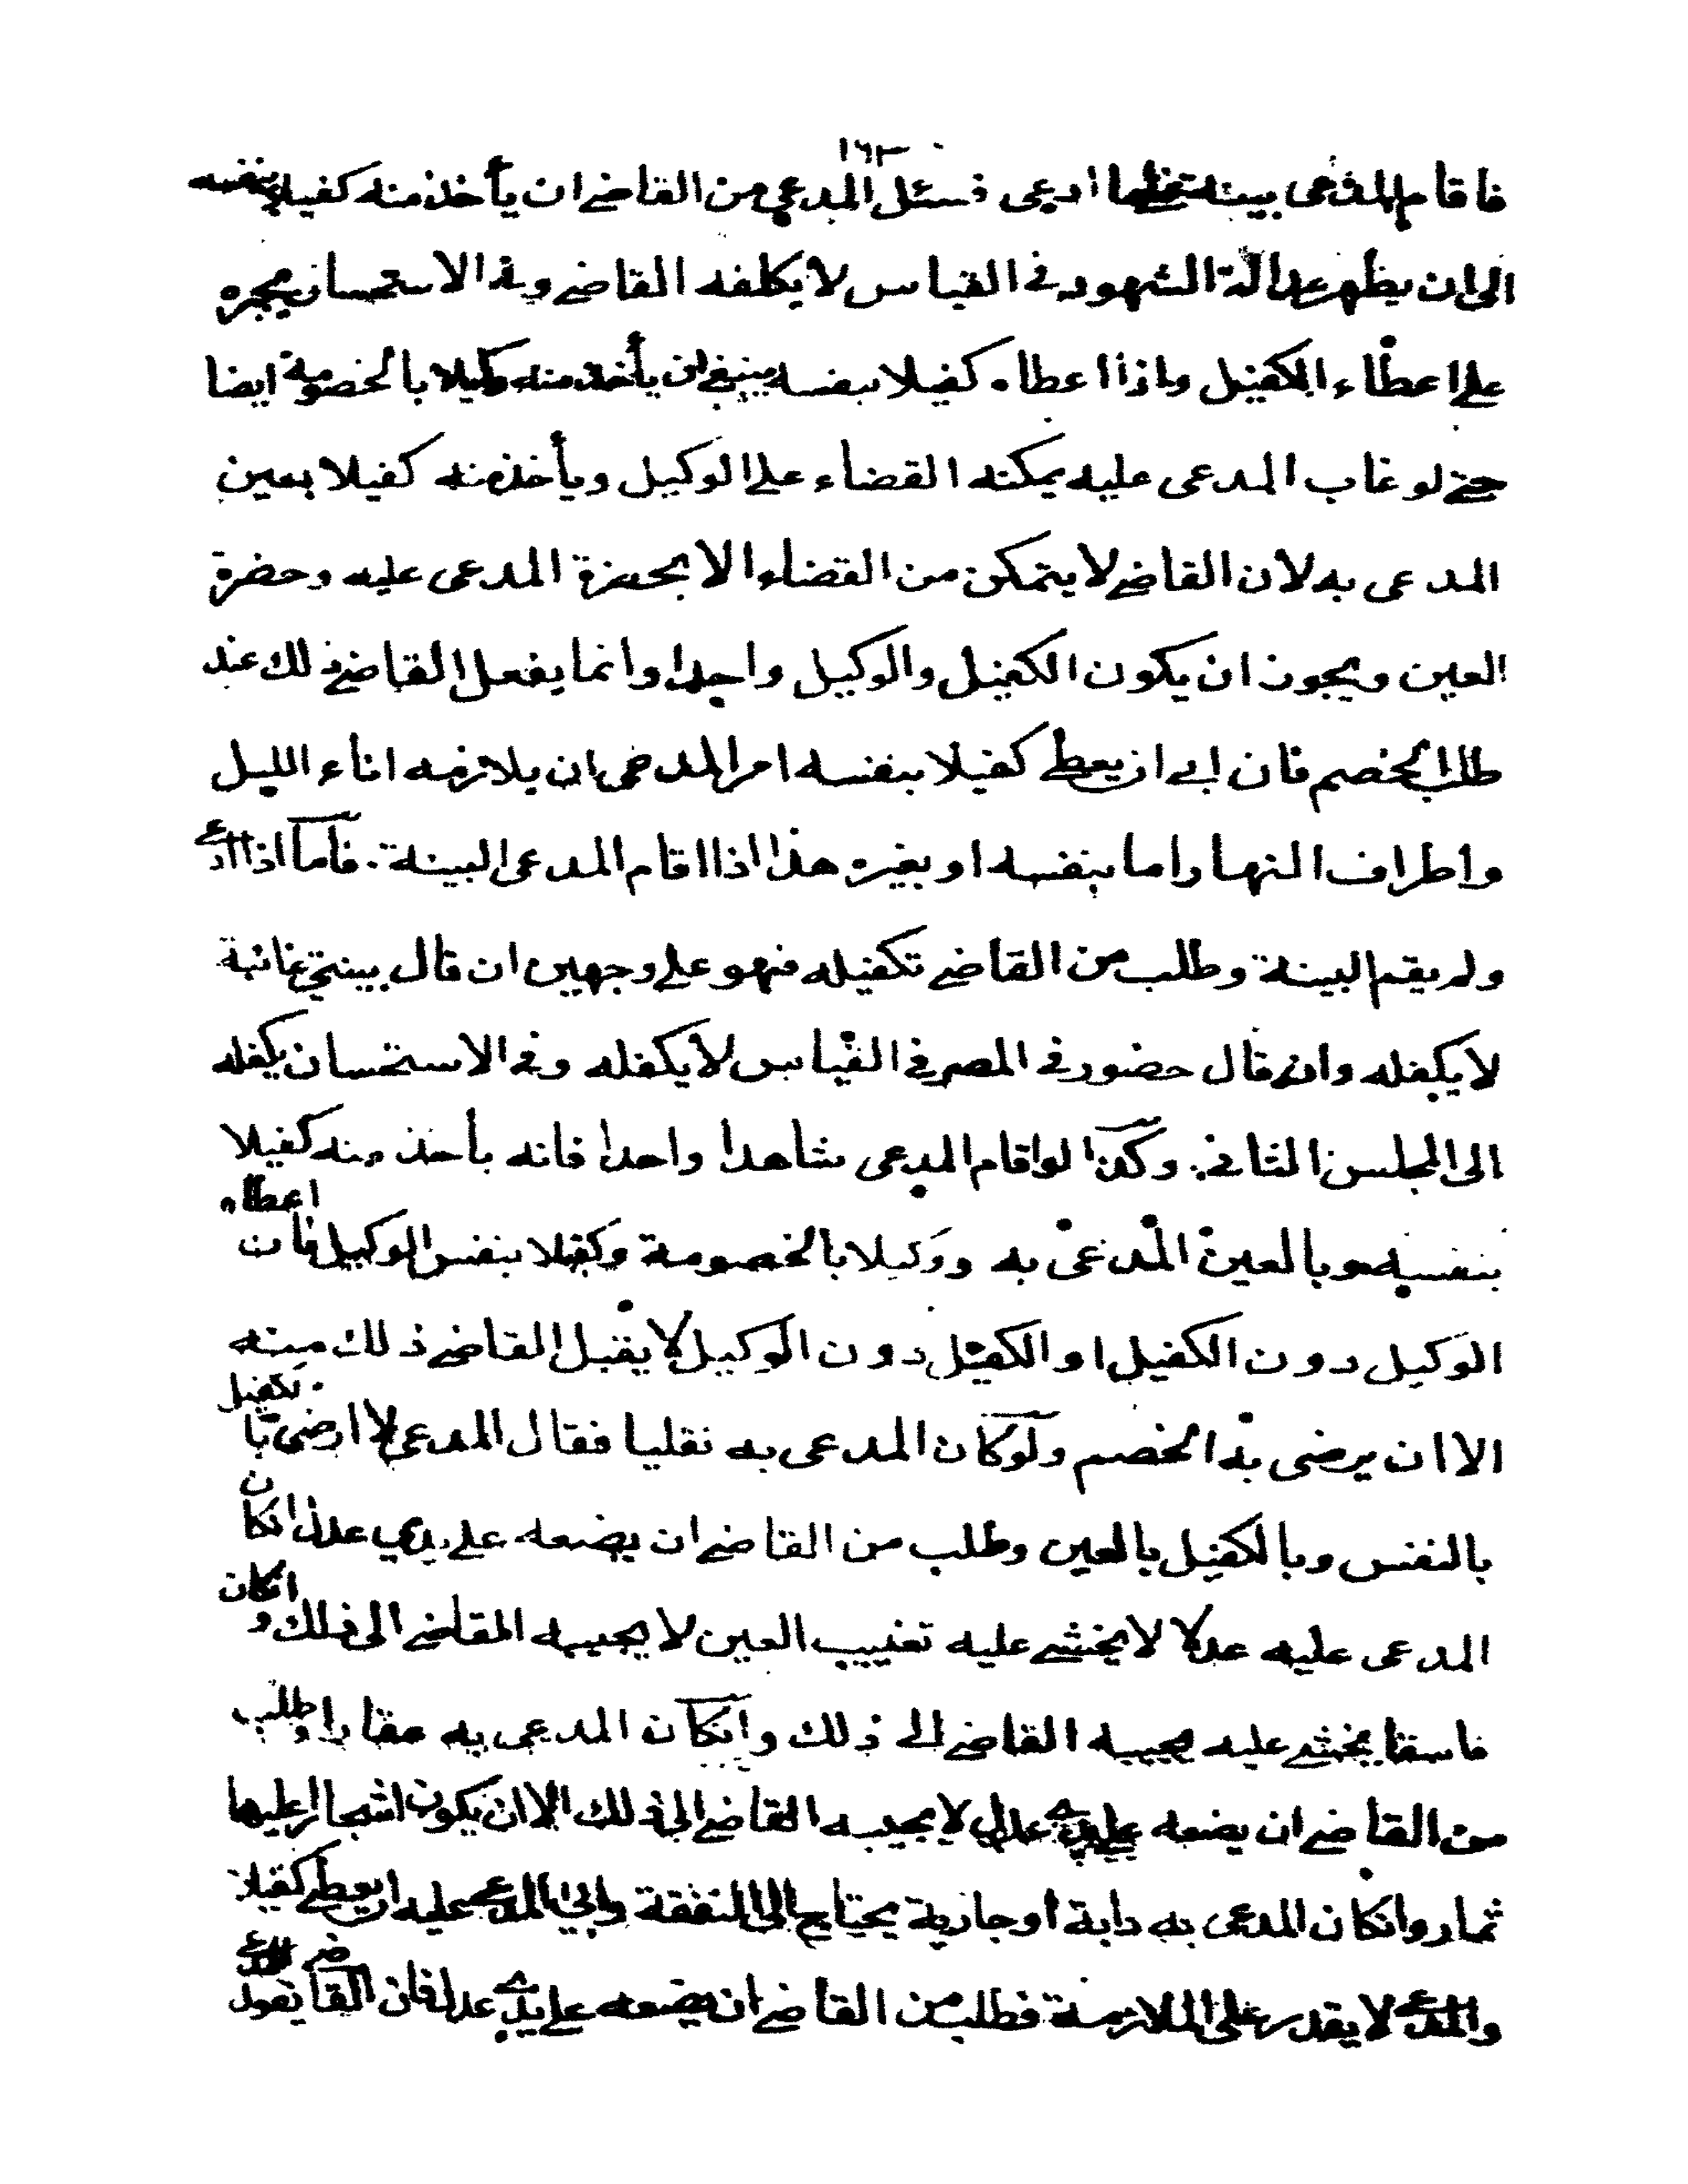 ١٦٣
فاقام المدعى بينة على ما ادعى فسئل المدعي من القاضي ان يأخذ منه كفيلا بنفسه
الى ان يظهر عدالة الشهود في القياس لا يكلفه القاضي وفي الاستحسان يجبره
على اعطاء الكفيل واذا اعطاه كفيلا بنفسه ينبغي ان يأخذ منه وكيلا بالخصومة ايضا
حتى لو غاب المدعى عليه يمكنه القضاء على الوكيل ويأخذ منه كفيلا بعين
المدعى به لان القاضي لا يتمكن من القضاء الا بحضرة المدعى عليه وحضرة
العين ويجوز ان يكون الكفيل والوكيل واحدا وانما يفعل القاضي ذلك عند
طلب الخصم فان ابى ان يعطي كفيلا بنفسه امر المدعى ان يلازمه اناء الليل
واطراف النهار اما بنفسه او بغيره هذا اذا اقام المدعى البينة. فأما اذا ادعى
ولم يقم البينة وطلب من القاضي تكفيله فهو على وجهين ان قال بينتي غائبة
لا يكفله وان قال حضور في المصر في القياس لا يكفله وفي الاستحسان يكفله
الى المجلس الثاني. وكذا لو اقام المدعى شاهدا واحدا فانه يأخذ منه كفيلا
بنفسه وبالعين المدعى به ووكيلا بالخصومة وكفيلا بنفس الوكيل فان اعطاه
الوكيل دون الكفيل او الكفيل دون الوكيل لا يقبل القاضي ذلك منه
الا ان يرضى به الخصم ولو كان المدعى به نقليا فقال المدعى لا ارضى بالتكفيل
بالنفس وبالكفيل بالعين وطلب من القاضي ان يضعه على يدي عدل انكان
المدعى عليه عدلا لا يخشى عليه تغييب العين لا يجيبه القاضي الى ذلك وانكان
فاسقا يخشى عليه يجيبه القاضي الى ذلك وانكان المدعى به عقارا وطلب
من القاضي ان يضعه على يدي عدل لا يجيبه القاضي الى ذلك الا ان يكون اشجارا عليها
ثمار وانكان المدعى به دابة او جارية يحتاج الى النفقة وابى المدعى عليه ان يعطي كفيلا
والمدعى لا يقدر على الملازمة فطلب من القاضي ان يضعه على يدي عدل فان القاضي يقول